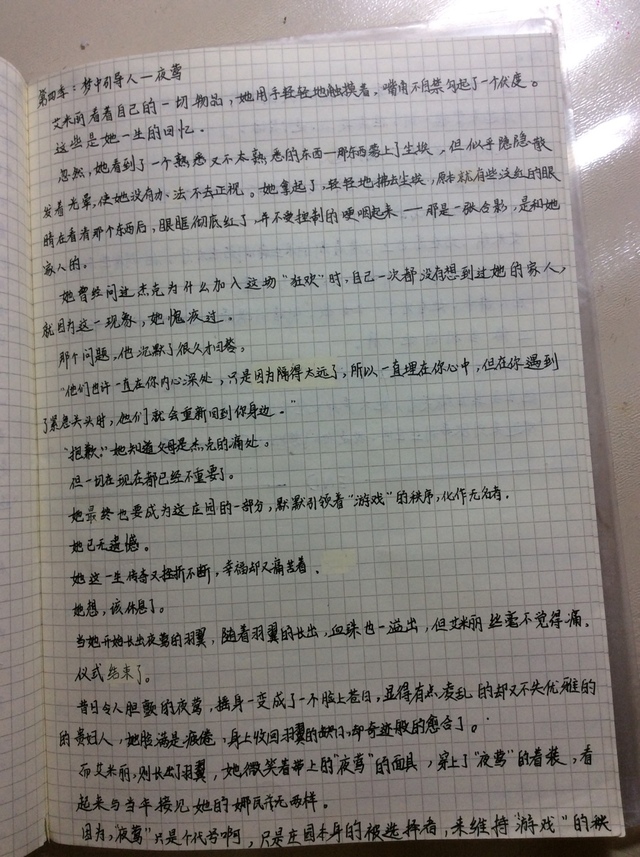 第四章：梦中引导人—夜莺
艾米丽看着自己的一切物品，她用手轻轻地触摸着，嘴角不自禁勾起了一个伏度。
这些是她一生的回忆。
忽然，她看到了一个熟悉又不太熟悉的东西—那东西蒙上了尘埃，但似乎隐隐散
发着光晕，使她没有办法不去正视。她拿起了，轻轻地拂去尘埃，原本就有些泛红的眼
睛在看清那个东西后，眼眶彻底红了，并不受控制的哽咽起来——那是一张合影，是和她
家人的。
她曾经问过杰克为什么加入这场“狂欢”时，自己一次都没有想到过她的家人，
就因为这一现象，她愧疚过。
那个问题，他沉默了很久才回答，
“他们也许一直在你内心深处，只是因为隔得太远了，所以一直埋在你心中，但在你遇到
了紧急关头时，他们就会重新回到你身边。”
“抱歉。”她知道父母是杰克的痛处。
但一切在现在都已经不重要了。
她最终也要成为这庄园的一部分，默默引领着“游戏”的秩序，化作无名者。
她已无遗憾。
她这一生传奇又挫折不断，幸福却又痛苦着。
她想，该休息了。
当她开始长出夜莺的羽翼，随着羽翼的长出，血珠也一溢出，但艾米丽丝毫不觉得痛。
仪式结束了。
昔日令人胆颤的夜莺，摇身一变成了一个脸上苍白，显得有点凌乱的却又不失优雅的
的贵妇人，她脸满是疲倦，身上收回羽翼的缺口，却奇迹般的愈合了。
而艾米丽，则长出了羽翼，她微笑着带上的“夜莺”的面具，穿上了“夜莺”的着装，看
起来与当年接见她的娜氏并无两样。
因为，“夜莺”只是个代号啊，只是庄园本身的被选择者，来维持“游戏”的秩